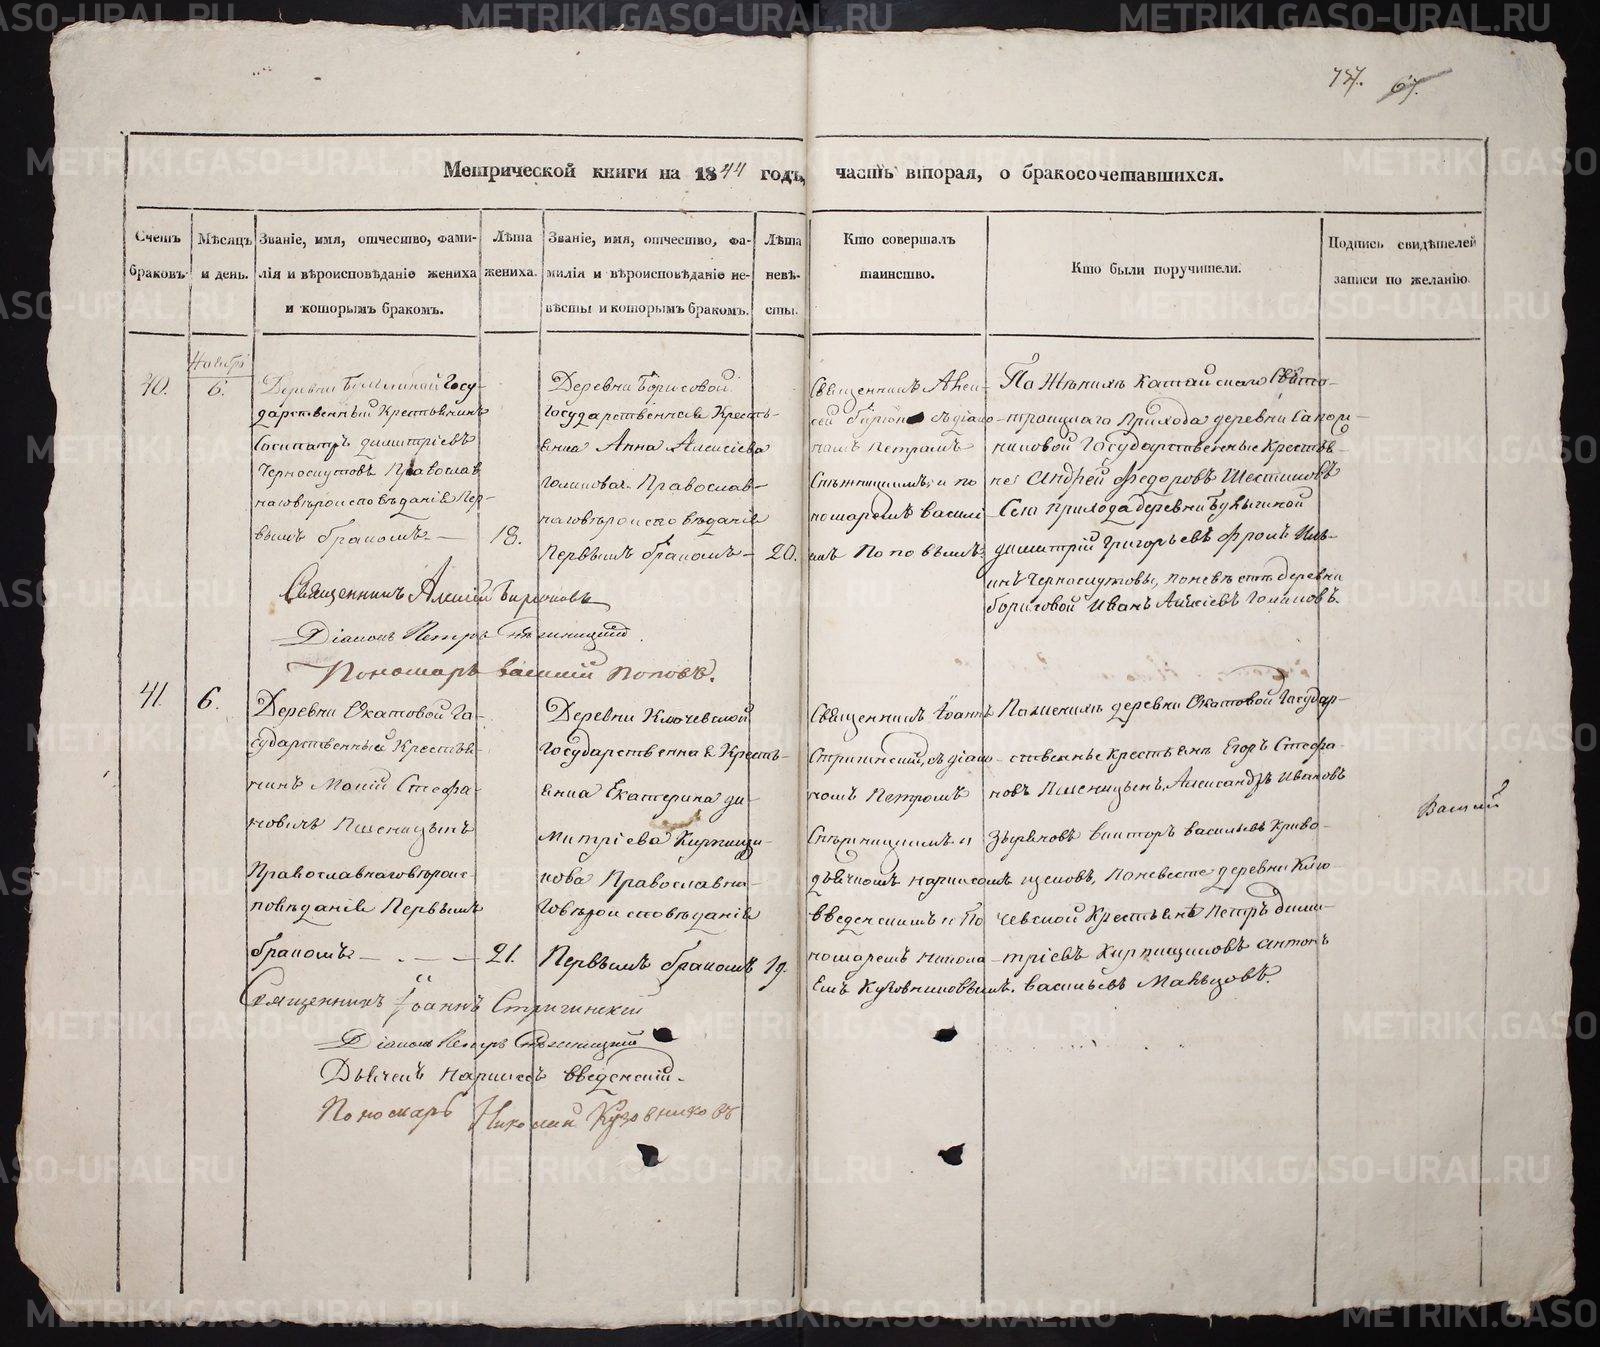 METRIKI.GASO-URAL.RU
757. 67.
Метрической книги на 1844 годъ, часть вторая, о бракосочетавшихся.
Счетъ браковъ.
Мѣсяцъ и день.
Званіе, имя, отчество, фами-
лія и вѣроисповѣданіе жениха
и которымъ бракомъ.
Лѣта жениха.
Званіе, имя, отчество, фа-
милія и вѣроисповѣданіе не-
вѣсты и которымъ бракомъ.
Лѣта невѣ-
сты.
Кто совершалъ
таинство.
Кто были поручители.
Подпись свидѣтелей
записи по желанію.
40.
Ноября
6.
Деревни Госу-
дарственный Крестьянинъ
Димитріевъ
Черноскутовъ Православ
наго вѣроисповѣданія Пер-
вымъ бракомъ —
18.
Деревни Борисовой
Государственная Кресть-
янка Анна Алексіева
Голикова Православ-
наго вѣроисповѣданія
Первымъ бракомъ —
20.
Священникъ Алек-
сѣй съ діако-
номъ Петромъ
и по
номаремъ Васили
емъ Поповымъ.
По Женихѣ Катайскаго Свято-
троицкаго Прихода деревни
Государственные Крестья-
не Андрей Федоровъ Шестаковъ
Сего прихода деревни
Димитрій Григорьевъ Фролъ
Черноскутовы, по невѣстѣ деревни
Борисовой Иванъ Алексіевъ Голиковъ.
Священникъ Алексій Бирюковъ
Діаконъ Петръ
Пономарь Василій Поповъ.
41.
6.
Деревни Окатовой Го-
сударственный Крестья-
нинъ Стефа-
новичъ Пшеницынъ
Православнаго вѣроис-
повѣданія Первымъ
бракомъ — . — —
21.
Деревни Ключевской
Государственная Кресть-
янка Екатерина Ди-
митріева Кирпищи-
кова Православна-
го вѣроисповѣданія
Первымъ бракомъ
19.
Священникъ Іоаннъ
Стригинскій, съ діако-
номъ Петромъ
и
дьячкомъ
Введенскимъ и По
номаремъ Никола
емъ Кузовниковымъ.
По женихѣ деревни Окатовой Государ-
ственные крестьяне Егоръ Стефа-
новъ Пшеницынъ, Александръ Ивановъ
Зыряновъ Викторъ Васильевъ Криво-
щековъ, По невестѣ деревни Клю-
чевской Крестьяне Петръ Дими-
тріевъ Кирпищиковъ Антонъ
Васильевъ Мальцовъ.
Василій
Священникъ Іоаннъ Стригинскій
Діаконъ Петръ
Дьячекъ Введенскій.
Пономарь Николай Кузовниковъ